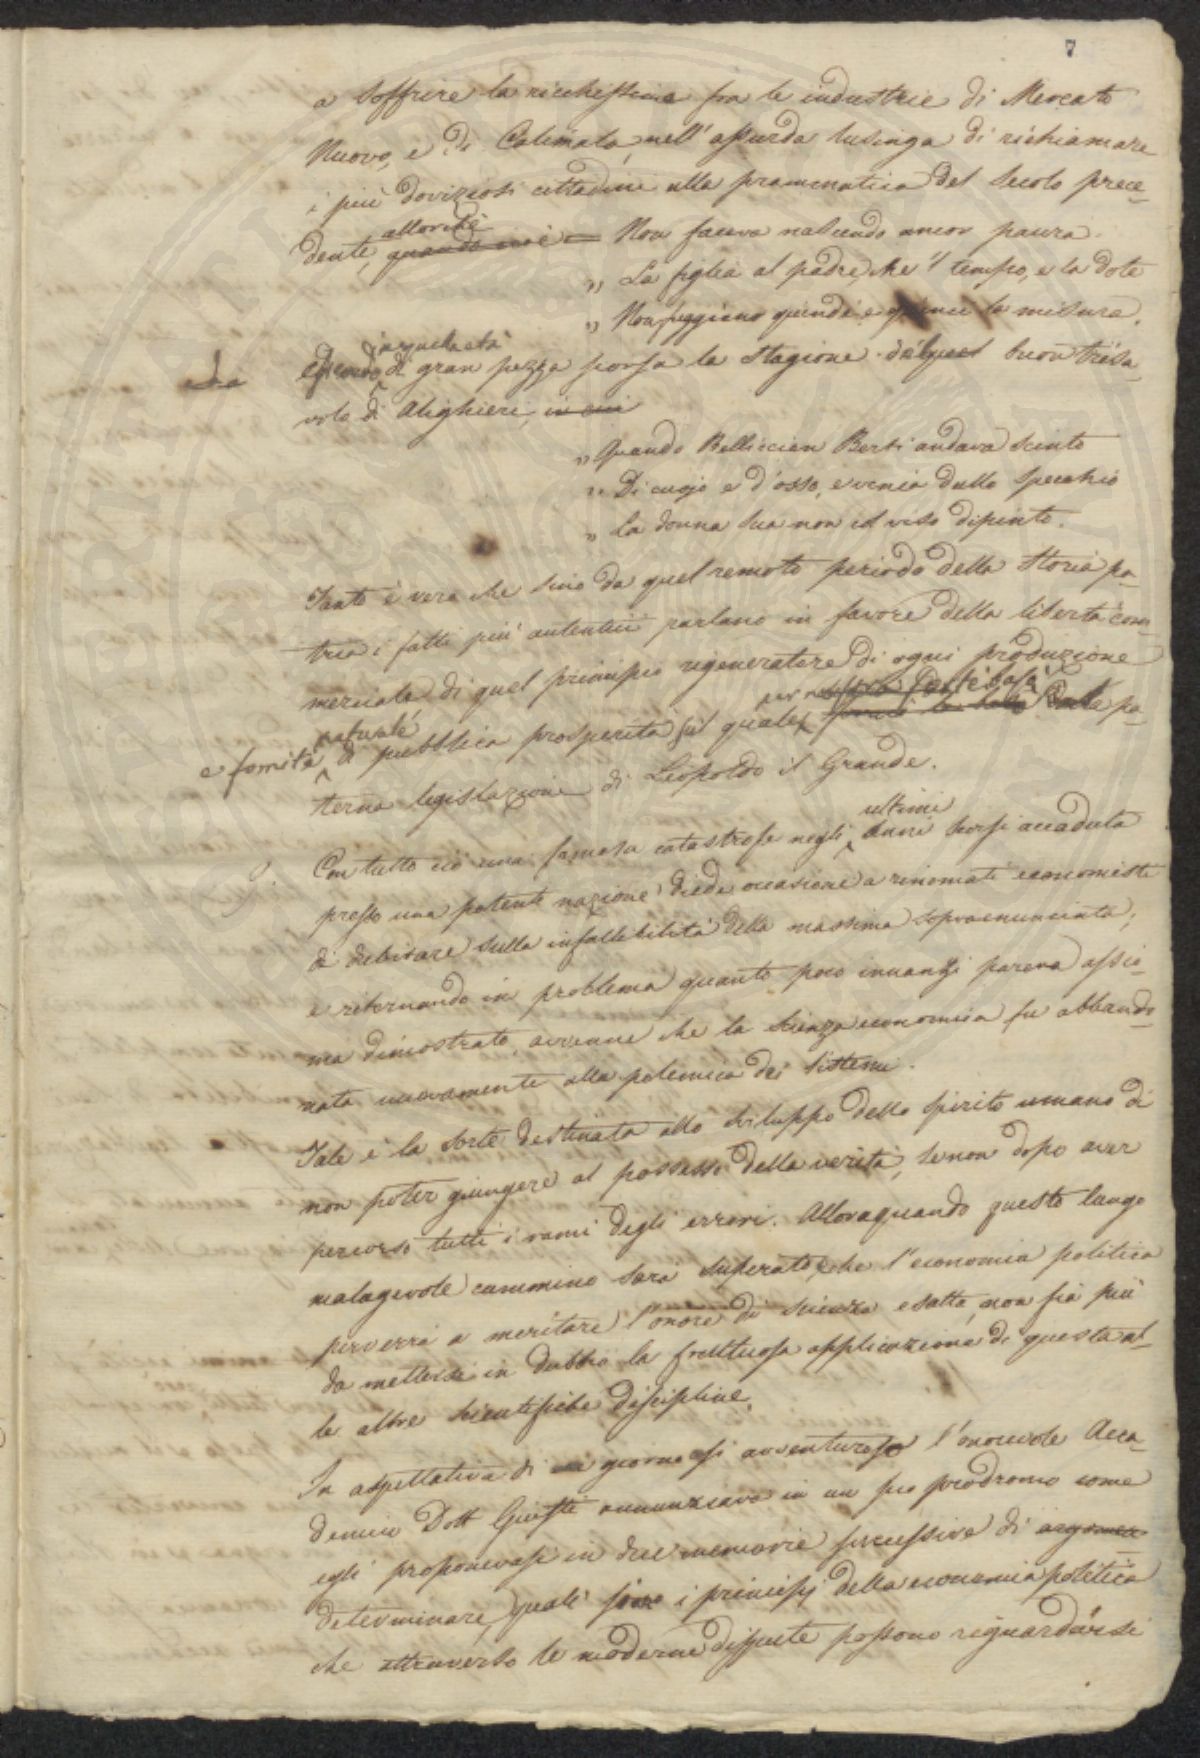 7
a soffrire la ricchissima fra le industrie di Mercato
Nuovo, e di Calimala, nell'assurda lusinga di richiamare
i più doviziosi cittadini alla prammatica del secolo prece-
allorchè
dente, quando cioè = Non faceva nascendo ancor paura
„ La figlia al padre, che 'l tempo, e la dote
„ Non fuggiano quindi e quinci la misura.
in quella età
essendo di gran pezza scorsa la stagione del quel buon trisa-
volo di Alighieri, in cui
„ Quando Bellincion Berti andava scinto
„ Di cuojo e d'osso, e venia dallo specchio
„ La donna sua non col viso dipinto.
Tanto è vero che sino da quel remoto periodo della storia pa-
tria i fatti più autentici parlano in favore della libertà com-
merciale di quel principio rigeneratore di ogni produzione
per
e fomite naturale di pubblica prosperità sul quale la pa-
terna legislazione di Leopoldo il Grande.
9. Con tutto ciò una famosa catastrofe negli ultimi anni scorsi accaduta
presso una potente nazione diede occasione a rinomati economisti
di dubitare sulla infallibilità della massima sopraenunciata,
e ritornando in problema quanto poco innanzi pareva assio-
ma dimostrato, avvenne che la scienza economica fu abbando-
nata nuovamente alla polemica dei sistemi.
Tale è la sorte destinata allo sviluppo dello spirito umano di
non poter giungere al possesso della verità, se non dopo aver
percorso tutti i rami degli errori. Alloraquando questo lungo
malagevole cammino sarà superato, che l'economia politica
perverrà a meritare l'onore di scienza esatta, non fia più
da mettersi in dubbio la fruttuosa applicazione di questa al-
le altre scientifiche discipline.
In aspettativa di un giorno sì avventuroso l'onorevole Acca-
demico Dott Giusti annunziava in un suo prodromo come
egli proponevasi in due memorie successive di
determinare, quali sono i principj della economia politica
che attraverso le moderne dispute possono riguardarsi